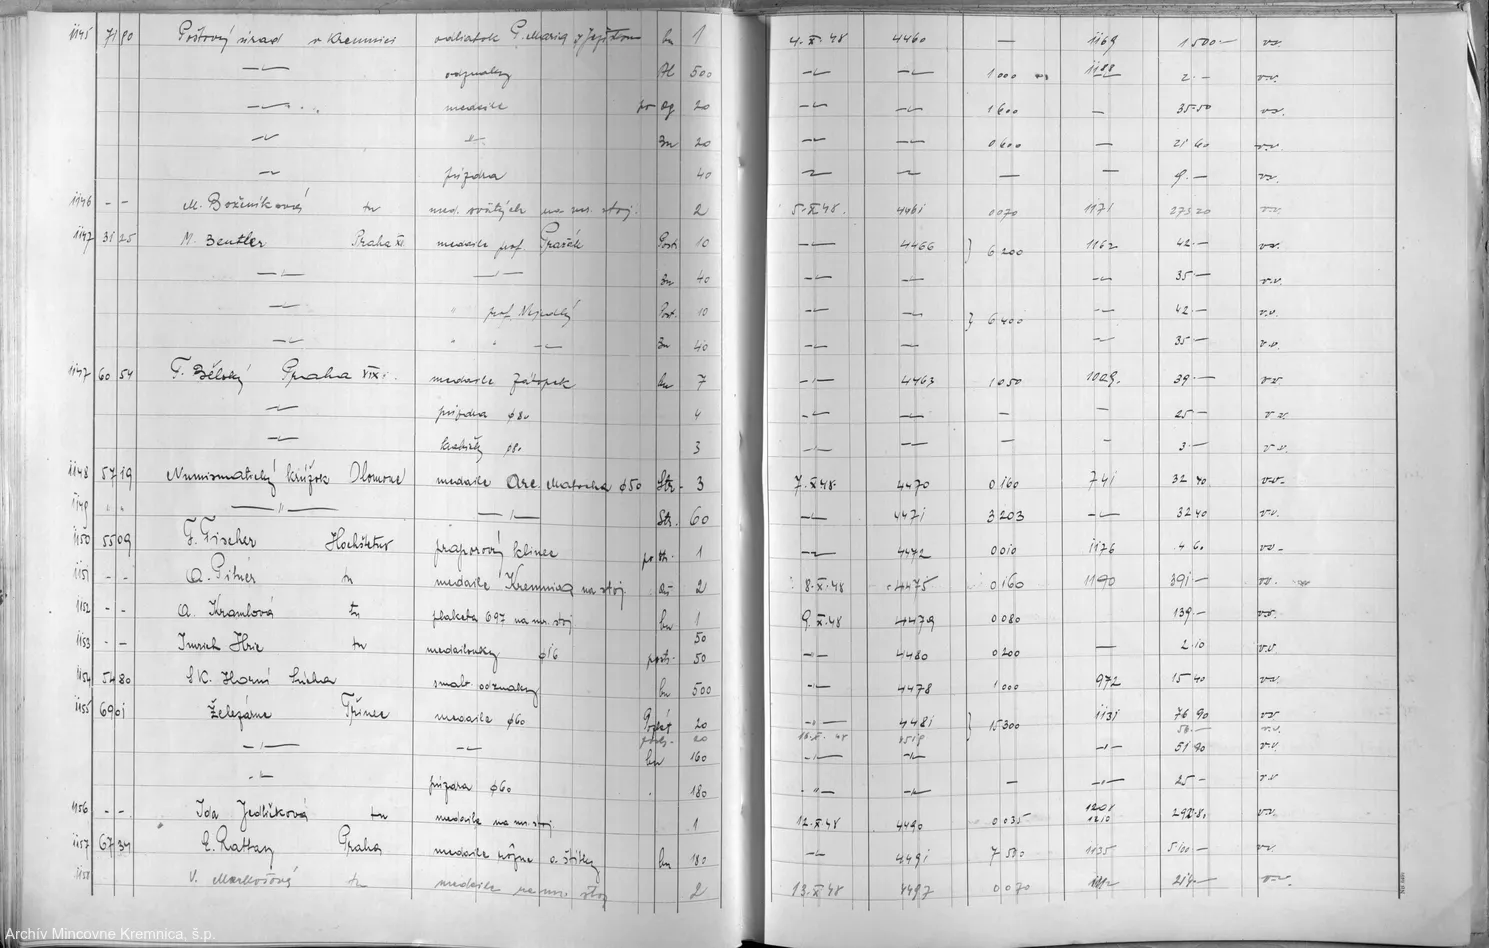 1145 7190 Poštový úrad v Kremnici odliatok P. Maria s Ježišom bn 1 4.X.48 4460 — 1169 1500— v.v.
—"— odznaky Al 500 —"— —"— 1 000 1188 2.— v.v.
—"— medaile po ag 20 —"— —"— 1 600 — 35.50 v.v.
—"— —"— Bn 20 —"— —"— 0 600 — 21 60 v.v.
—"— púzdra 40 —"— —"— — — 9.— v.v.
1146 - - M. Boženíková tu med. svätých na mr. stoj. 2 5.X.48. 4461 0 070 1171 275.20 v.v.
1147 31 25 M. Beutler Praha XI medaile prof. Prašék Post. 10 —"— 4466 } 6 200 1162 42.— v.v.
—"— —"— Bn 40 —"— —"— —"— 35.— v.v.
—"— " prof. Nejedlý Post. 10 —"— —"— } 6 400 —"— 42.— v.v.
—"— " " —"— Bn 40 —"— —"— —"— 35— v.v.
1147 60 54 T. Bělský Praha XIX. medaile Zátopek bn 7 —"— 4463 1 050 1029. 39.— v.v.
—"— púzdra ϕ 80 4 —"— —"— — — 25— v.v.
—"— ϕ80 3 —"— —"— — — 3.— v.v.
1148 57 19 Numizmatický krúžok Olomouc medaile Arc. Matocha ϕ50 Str. 3 7.X.48. 4470 0 160 741 32 40 v.v.
1149 " " —"— —"— Str. 60 —"— 4471 3 203 —"— 32 40 v.v.
1150 55 09 F. Fischer Hochštetno práporový klinec po str. 1 —"— 4472 0 010 1176 4 60 v.v.
1151 - - A. Pitner tu medaile Kremnica na stoj. 2 8.X.48 4475 0 160 1190 391.— v.v.
1152 - - A. Kramlová tu plaketa 697 na mr. stoj bn 1 9.X.48 4479 0 080 139.— v.v.
1153 - - Imrich Hric tu medailonky ϕ16 postr. 50 50 —"— 4480 0 200 — 2.10 v.v.
1154 54 80 ŠK. Horná Súča smalt. odznaky bn 500 —"— 4478 1 000 972 15 40 v.v.
1155 69 01 Železárne Třinec medaile ϕ60 20 —"— 4481 } 15 300 1131 76 90 v.v.
20 v.v.
—"— —"— bn 160 —"— —"— —"— 51 90 v.v.
—"— púzdra ϕ60 180 —"— —"— — —"— 25— v.v.
1156 - - Ida Jedličková tu medaile na mr. stoj. 1 12.X.48 4490 0 035 1208 1210 v.v.
1157 67 34 E. Rattay Praha medaile rôzne a. štítky bn 180 —"— 4491 7 500 1135 5100— v.v.
1158 V. Markošová tu medaile na mr. stoj 2 13.X.48 4497 0 070 214— v.v.
Archív Mincovne Kremnica, š.p.